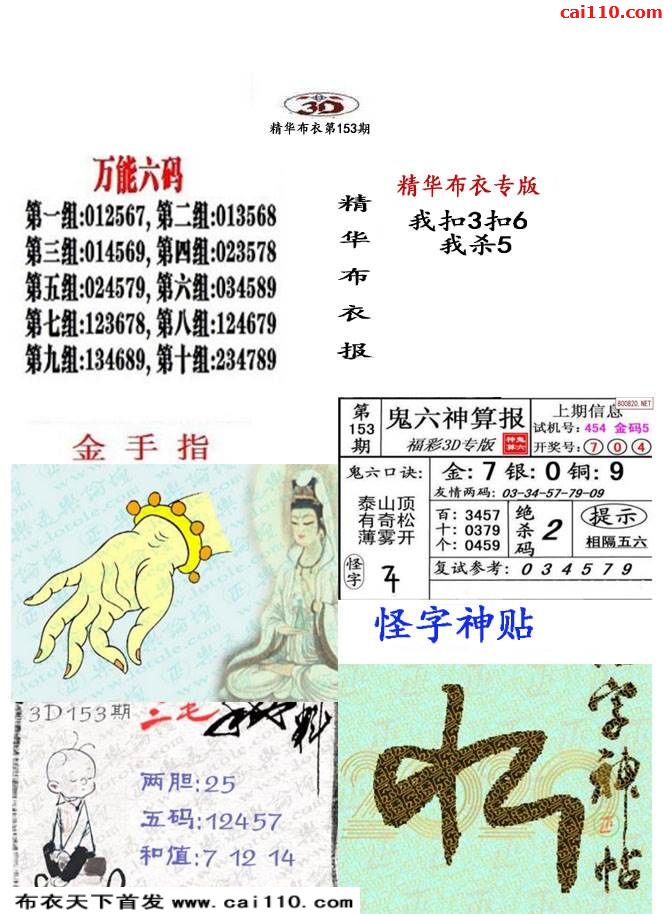 cai110.com
3D
精华布衣第153期
万能六码
第一组:012567, 第二组:013568
第三组:014569, 第四组:023578
第五组:024579, 第六组:034589
第七组:123678, 第八组:124679
第九组:134689, 第十组:234789
精华布衣报
精华布衣专版
我扣3扣6
我杀5
金手指
第153期
鬼六神算报
福彩3D专版
神鬼算六
上期信息
800820.NET
试机号: 454 金码5
开奖号: 7 0 4
鬼六口诀:
泰山顶
有奇松
薄雾开
怪字
金: 7 银: 0 铜: 9
友情两码: 03-34-57-79-09
百: 3457
十: 0379
个: 0459
绝杀码 2
提示
相隔五六
复试参考: 0 3 4 5 7 9
怪字神贴
3D153期 三毛
料
两胆:25
五码:12457
和值:7 12 14
布衣天下首发 www.cai110.com
2020
怪字神帖